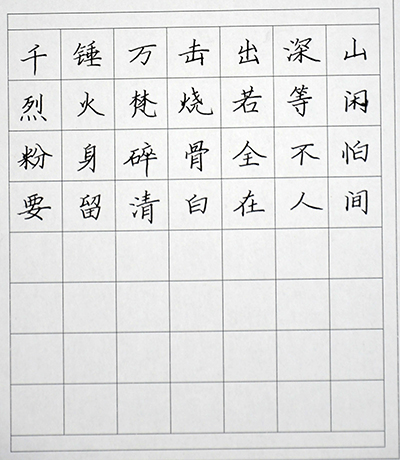 千锤万击出深山
烈火梵烧若等闲
粉身碎骨全不怕
要留清白在人间